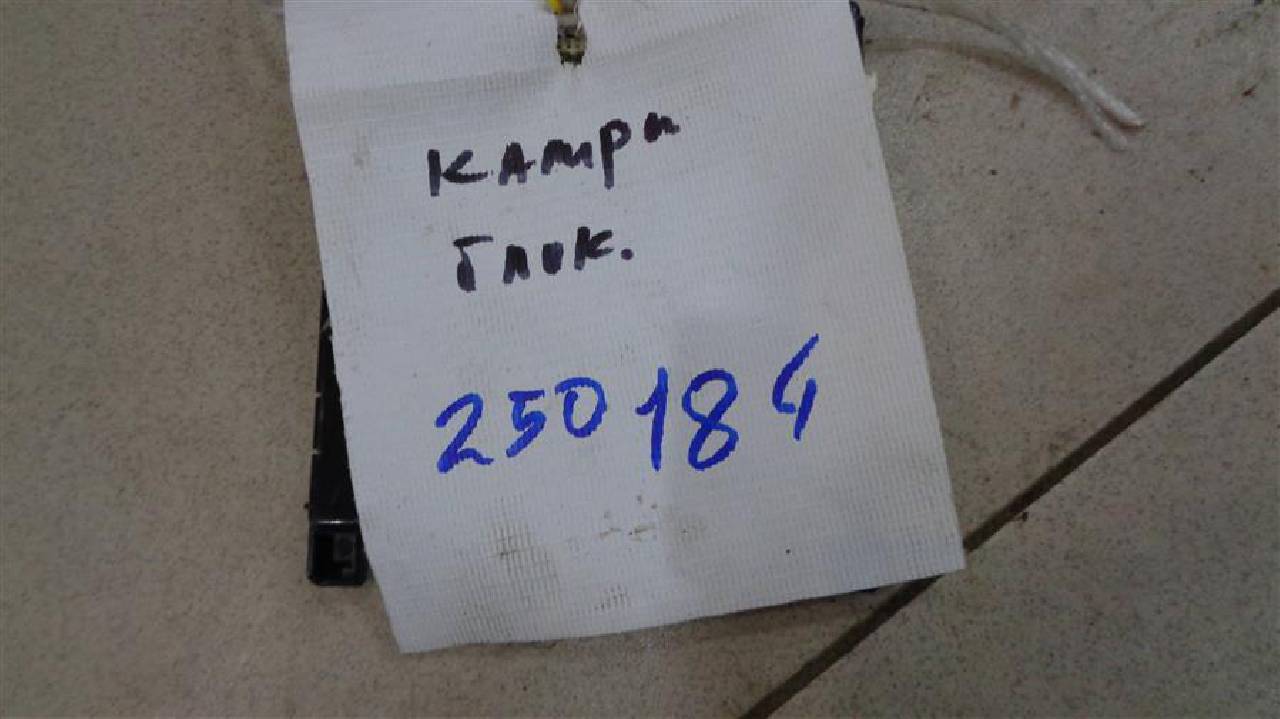 камри
блок.
250184